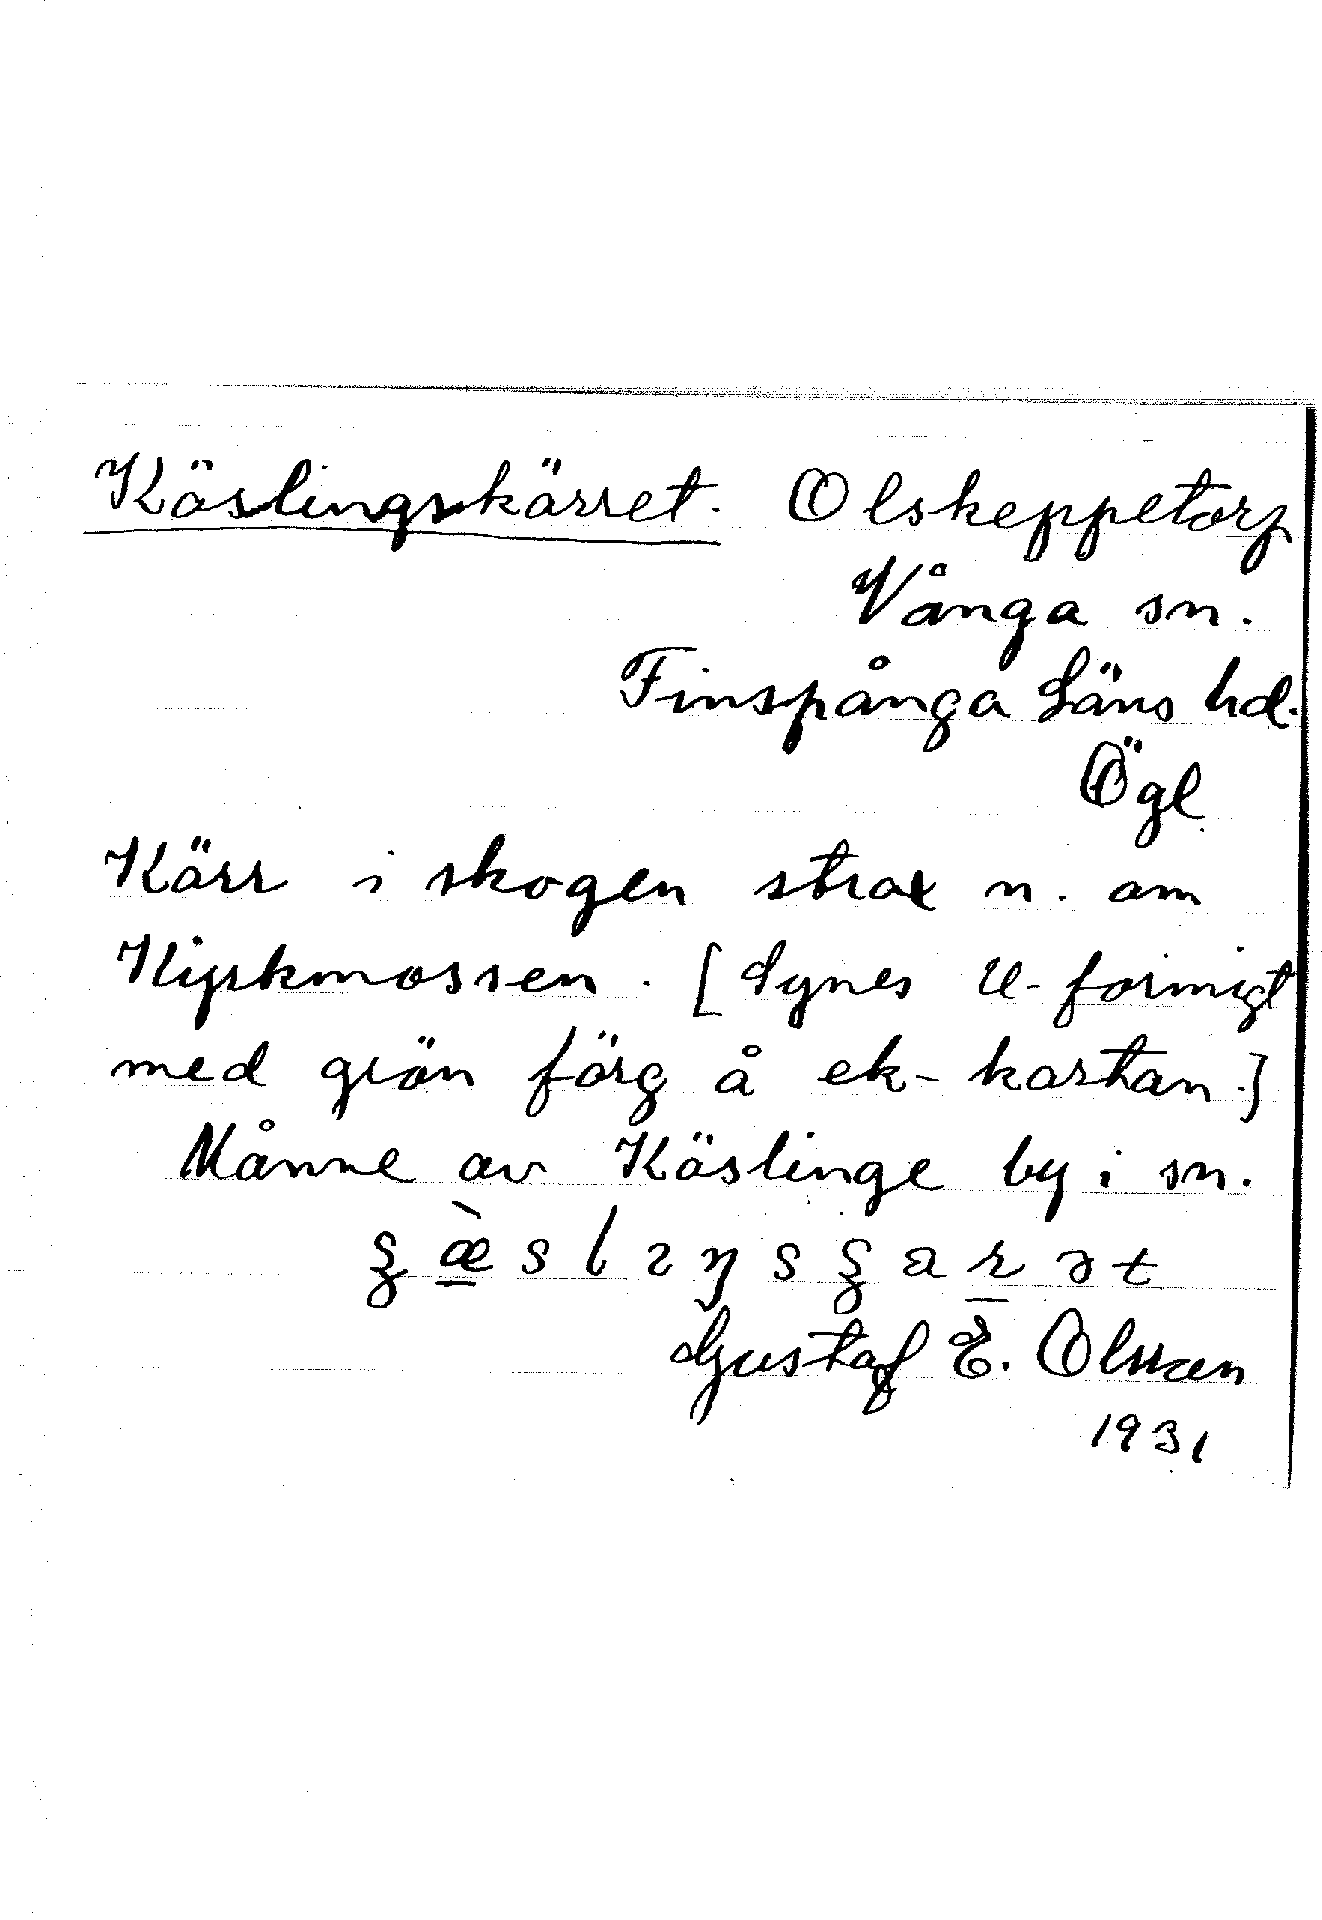 Käslingskärret. Olskeppetorp
Vånga sn.
Finspånga Läns hd.
Ögl
Kärr i skogen strax n. om
Kyrkmossen. [Synes U-formigt
med grön färg å ek-kartan.]
Månne av Käslinge by i sn.
Gustaf E. Olsson
1931